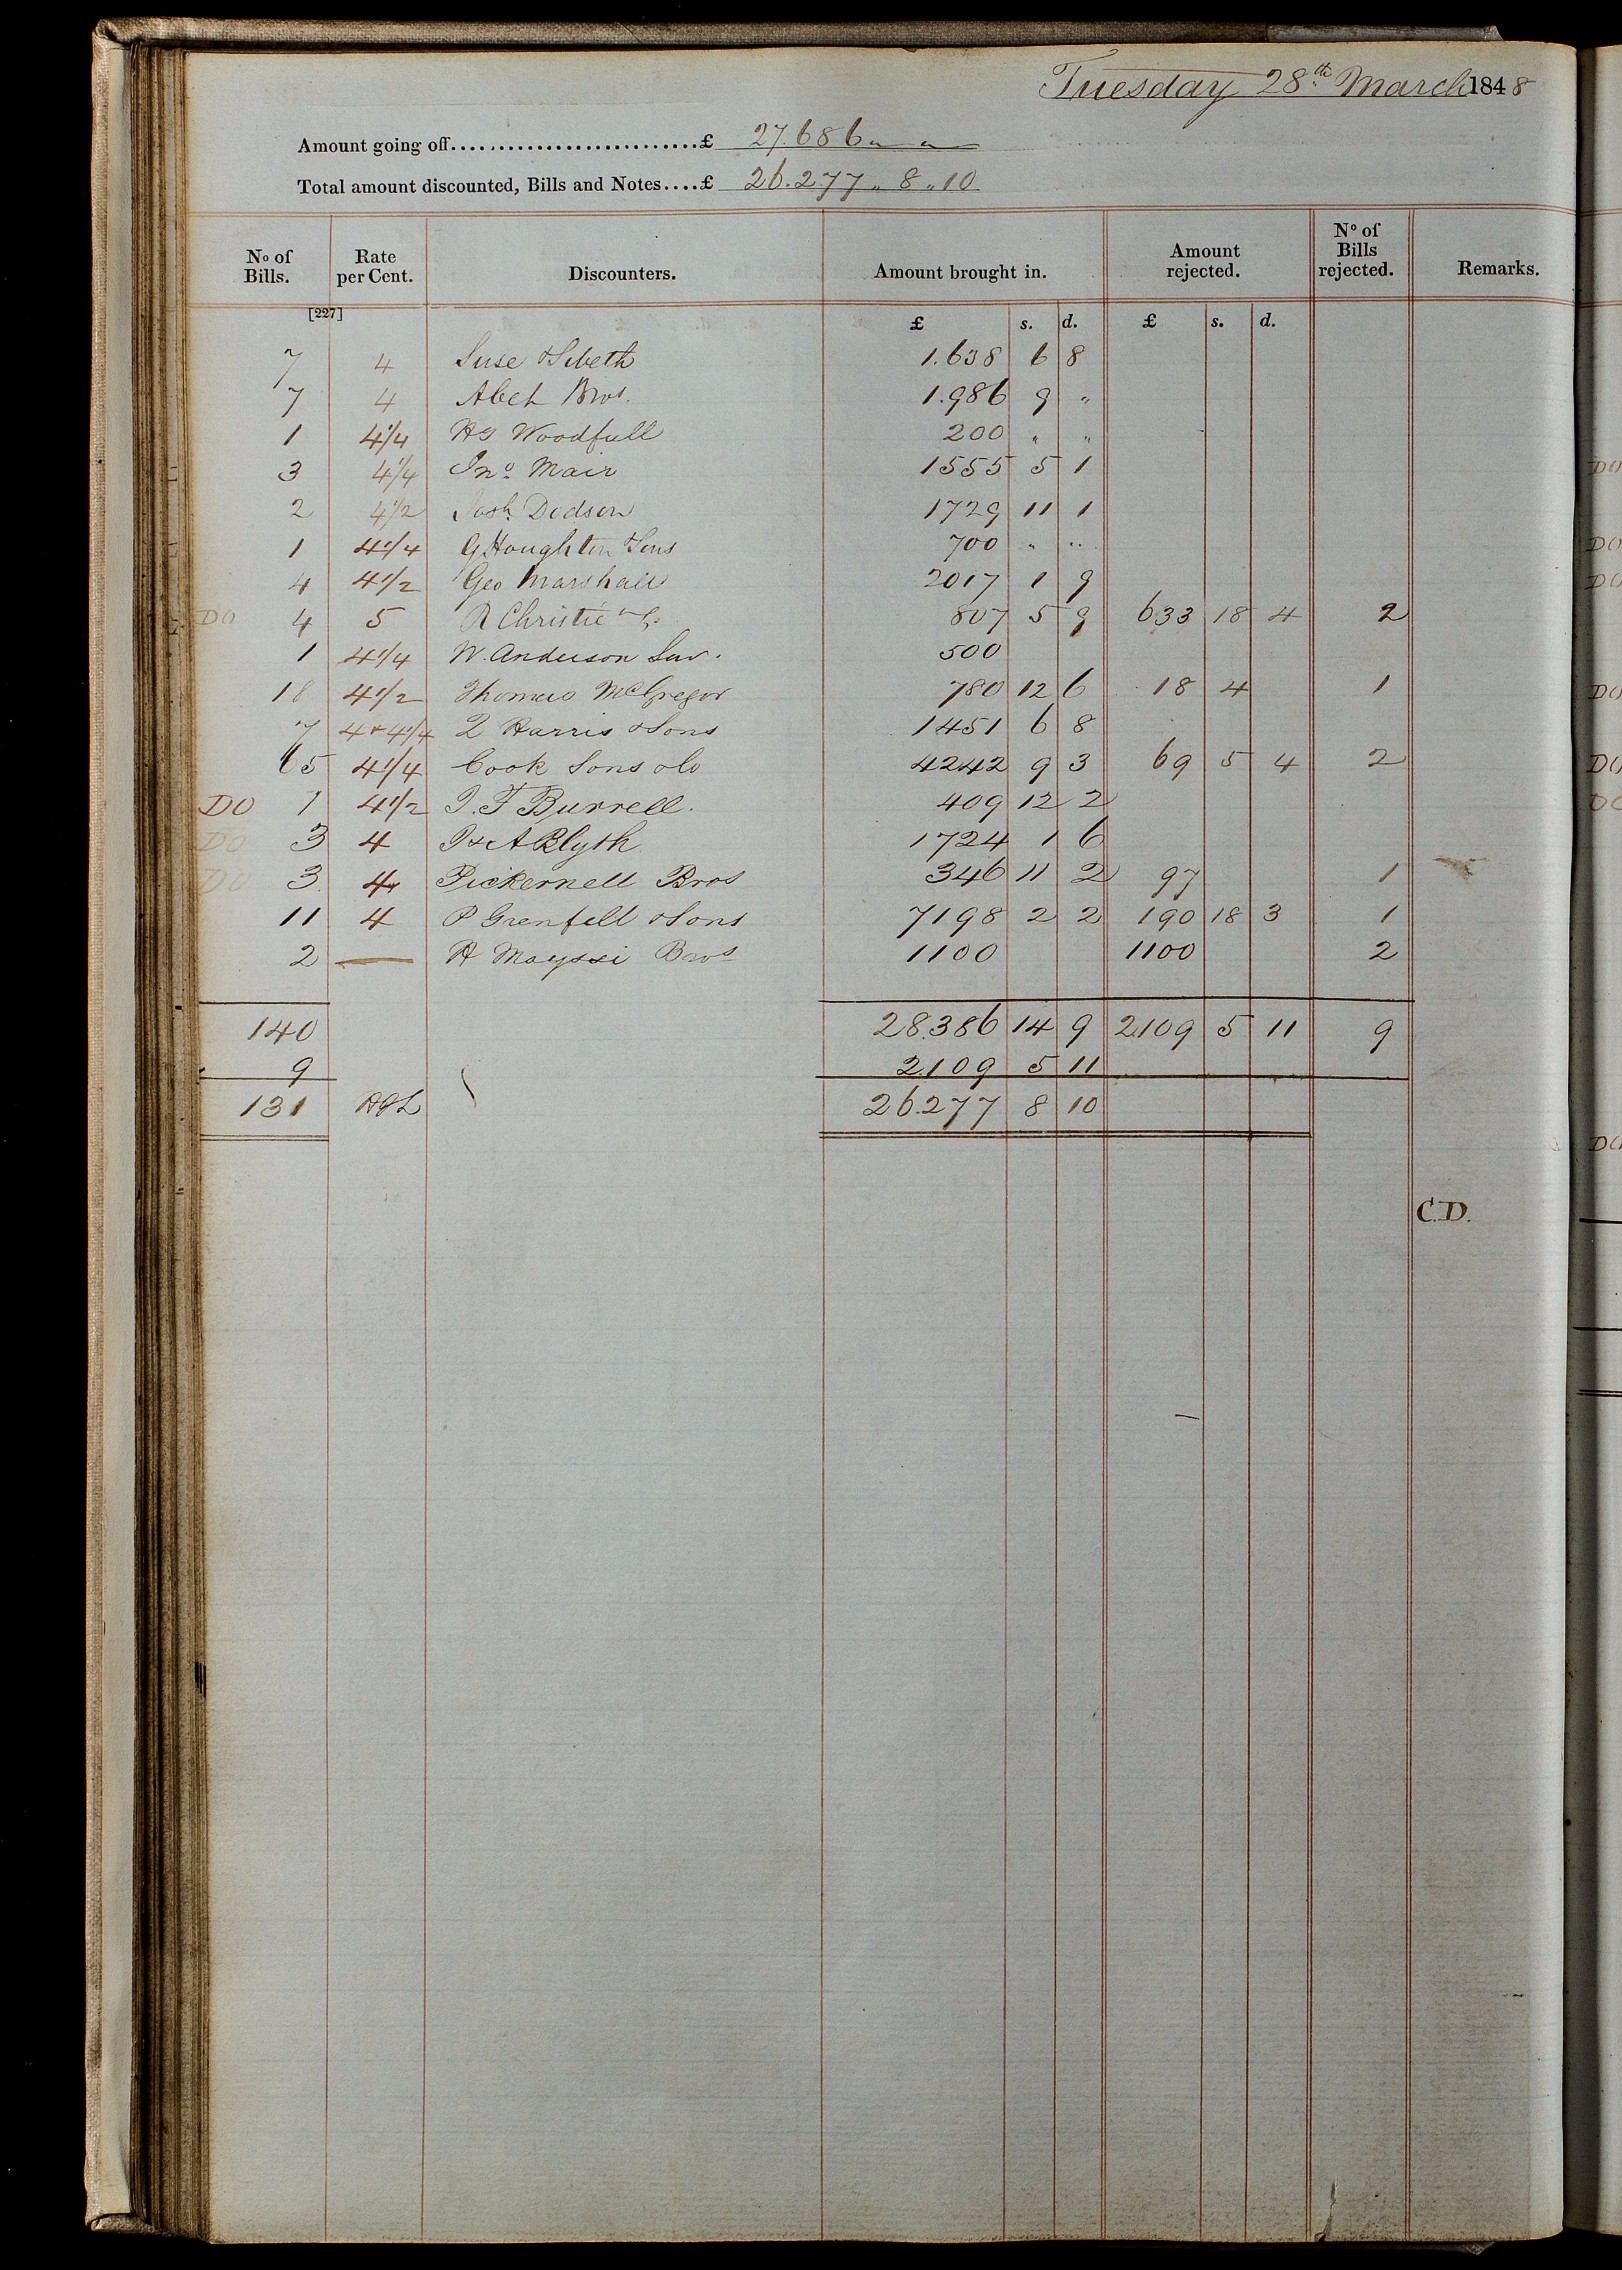 Tuesday 28th March 1848
Amount going off...........................£ 27.686 " "
Total amount discounted, Bills and Notes....£ 26.277 " 8 " 10
No of Bills. Rate per Cent. Discounters. Amount brought in. Amount rejected. No of Bills rejected. Remarks.
[227] £ s. d. £ s. d.
7 4 Suse & Sibeth 1.638 6 8
7 4 Abch Bros. 1.986 9 "
1 4 1/4 HG Woodfull 200 " "
3 4 1/4 Jno. Mair 1555 5 1
2 4 1/2 Josh. Dodson 1729 11 1
1 4 1/4 G Houghton & Sons 700 " "
4 4 1/2 Geo Marshall 2017 1 9
DO 4 5 R Christie & Co. 807 5 9 633 18 4 2
1 4 1/4 W. Anderson 500
18 4 1/2 Thomas McGregor 780 12 6 18 4 1
7 4 & 4 1/4 Q Harris & Sons 1451 6 8
65 4 1/4 Cook Sons & Co 4242 9 3 69 5 4 2
DO 1 4 1/2 J. F Burrell. 409 12 2
DO 3 4 J & A Blyth 1724 1 6
DO 3 4 Pickernell Bros 346 11 2 97 1
11 4 P Grenfell & Sons 7198 2 2 190 18 3 1
2 — Bros 1100 1100 2
140 28.386 14 9 2109 5 11 9
9 2.109 5 11
131 26.277 8 10
C.D.
DO
DO
DO
DO
DO
DO
DO